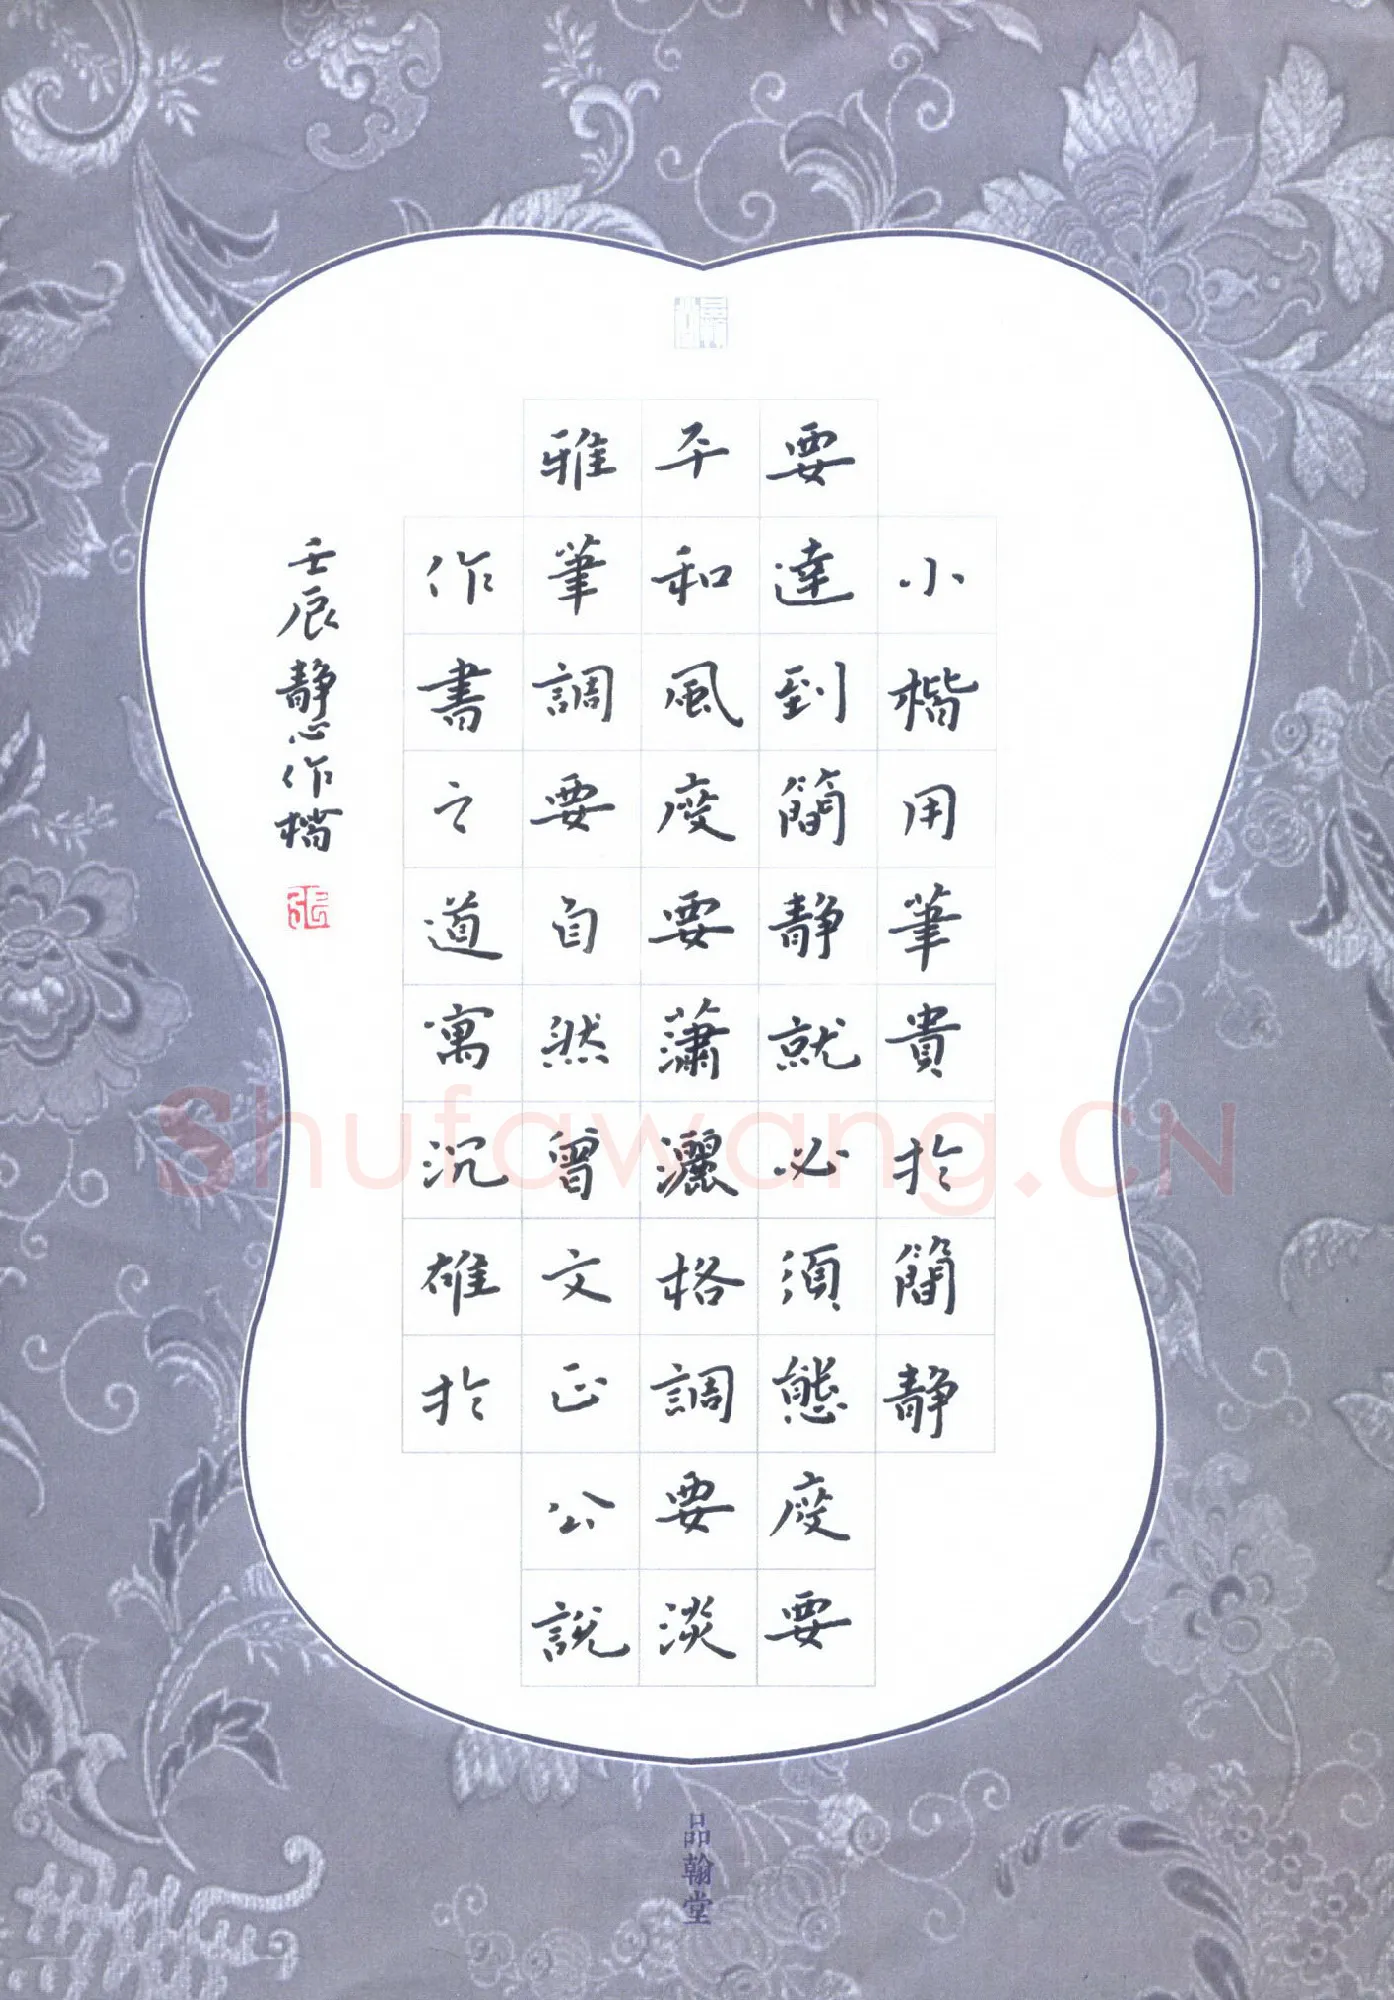 小楷用筆貴於簡静
要達到簡静就必須態度要
平和風度要瀟灑格調要淡
雅筆調要自然曾文正公說
作書之道寓沉雄於
壬辰静心作檔
品翰堂
Shufawang.CN